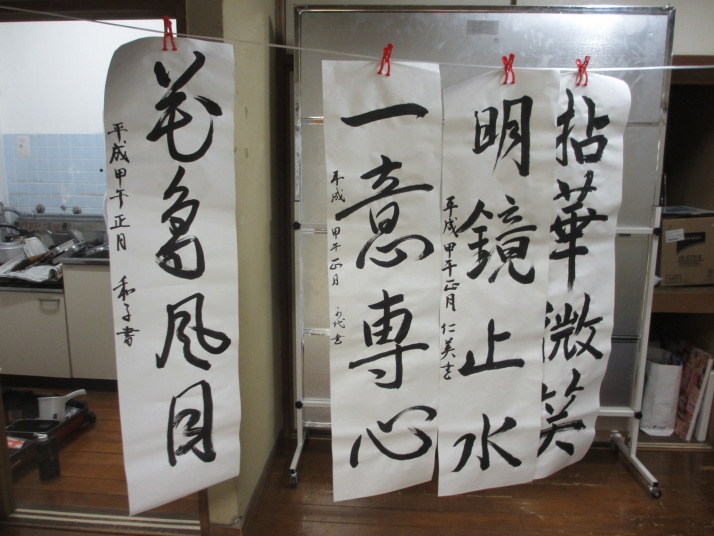 拈華微笑
明鏡止水
平成甲午正月 仁美書
一意専心
平成甲午正月
代書
花鳥風月
平成甲午正月 和子書